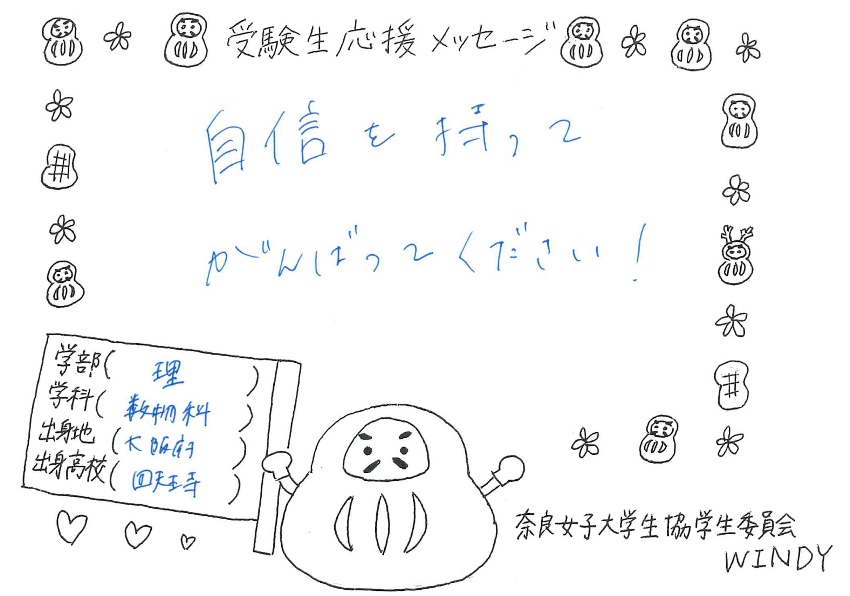 受験生応援メッセージ
自信を持って
がんばってください!
学部( 理 )
学科( 数物科 )
出身地( 大阪府 )
出身高校( 四天王寺 )
奈良女子大学生協学生委員会
WINDY